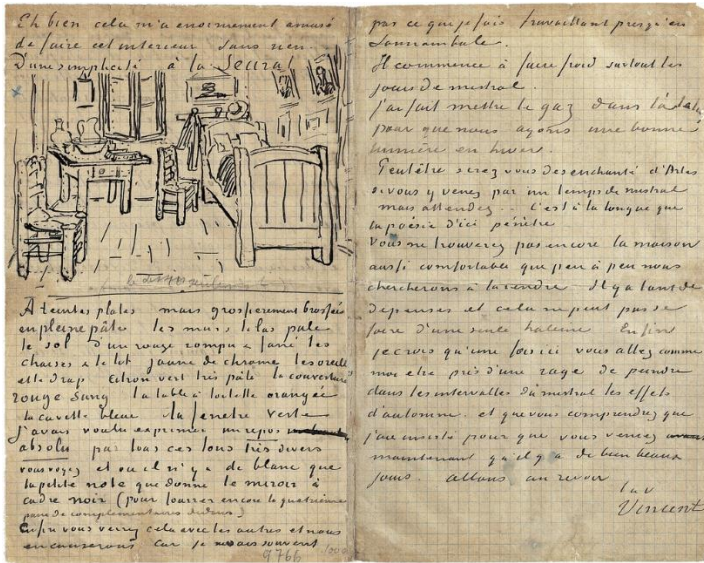 Eh bien cela m'a enormement amusé
de faire cet interieur sans rien.
D'une simplicité à la Seurat
À teintes plates mais grossierement brossées
en pleine pâte les murs lilas pale
le sol d'un rouge rompu & fané les
chaises & le lit jaune de chrome les oreillers
et le drap citron vert très pâle la couverture
rouge sang la table à toilette orangée
la cuvette bleue la fenetre verte
J'avais voulu exprimer un repos
absolu par tous ces tons très divers
vous voyez et où il n'y a de blanc que
la petite note que donne le miroir à
cadre noir (pour fourrer encore la quatrième
paire de complementaires dedans.)
Enfin vous verrez cela avec les autres et nous
en causerons car je ne sais souvent
9766
pas ce que je fais travaillant presqu'en
somnambule.
Il commence à faire froid surtout les
jours de mistral.
J'ai fait mettre le gaz dans l'atelier
pour que nous ayons une bonne
lumière en hiver.
Peutêtre serez vous desenchanté d'Arles
si vous y venez par un temps de mistral
mais attendez.. C'est à la longue que
la poésie d'ici pénètre
Vous ne trouverez pas encore la maison
aussi comfortable que peu à peu nous
chercherons à la rendre Il y a tant de
depenses et cela ne peut pas se
faire d'une seule haleine Enfin
je crois qu'une fois ici vous allez comme
moi etre pris d'une rage de peindre
dans les intervalles du mistral les effets
d'automne. et que vous comprendrez que
j'aie insisté pour que vous venez
maintenant qu'il y a de bien beaux
jours. allons au revoir
t. à v.
Vincent